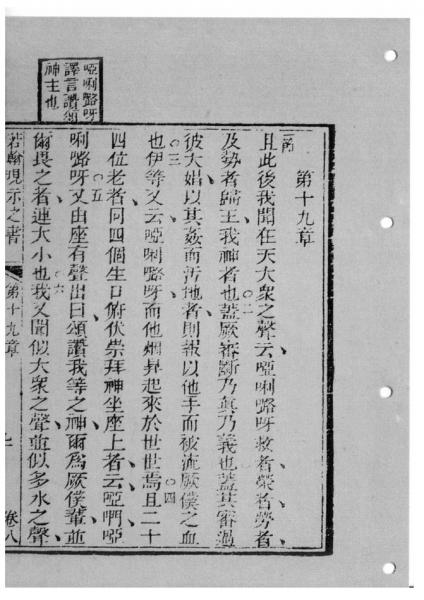 啞唎嚕呀
譯言讚頌
神主也
第十九章
一節 且此後我聞在天大衆之聲云啞唎嚕呀救者榮者勞者
及勢者歸主我神者也○二蓋厥審斷乃眞乃義也蓋其審過
彼大娼以其姦而汚地者則報以他手而被流厥僕之血
也○三伊等又云啞唎嚕呀而他烟昇起來於世世焉○四且二十
四位老者同四個生日俯伏崇拜神坐座上者云啞們啞
唎嚕呀○五又由座有聲出曰頌讚我等之神爾爲厥僕輩並
爾畏之者連大小也○六我又聞似大衆之聲並似多水之聲
若翰現示之書 第十九章 卷八